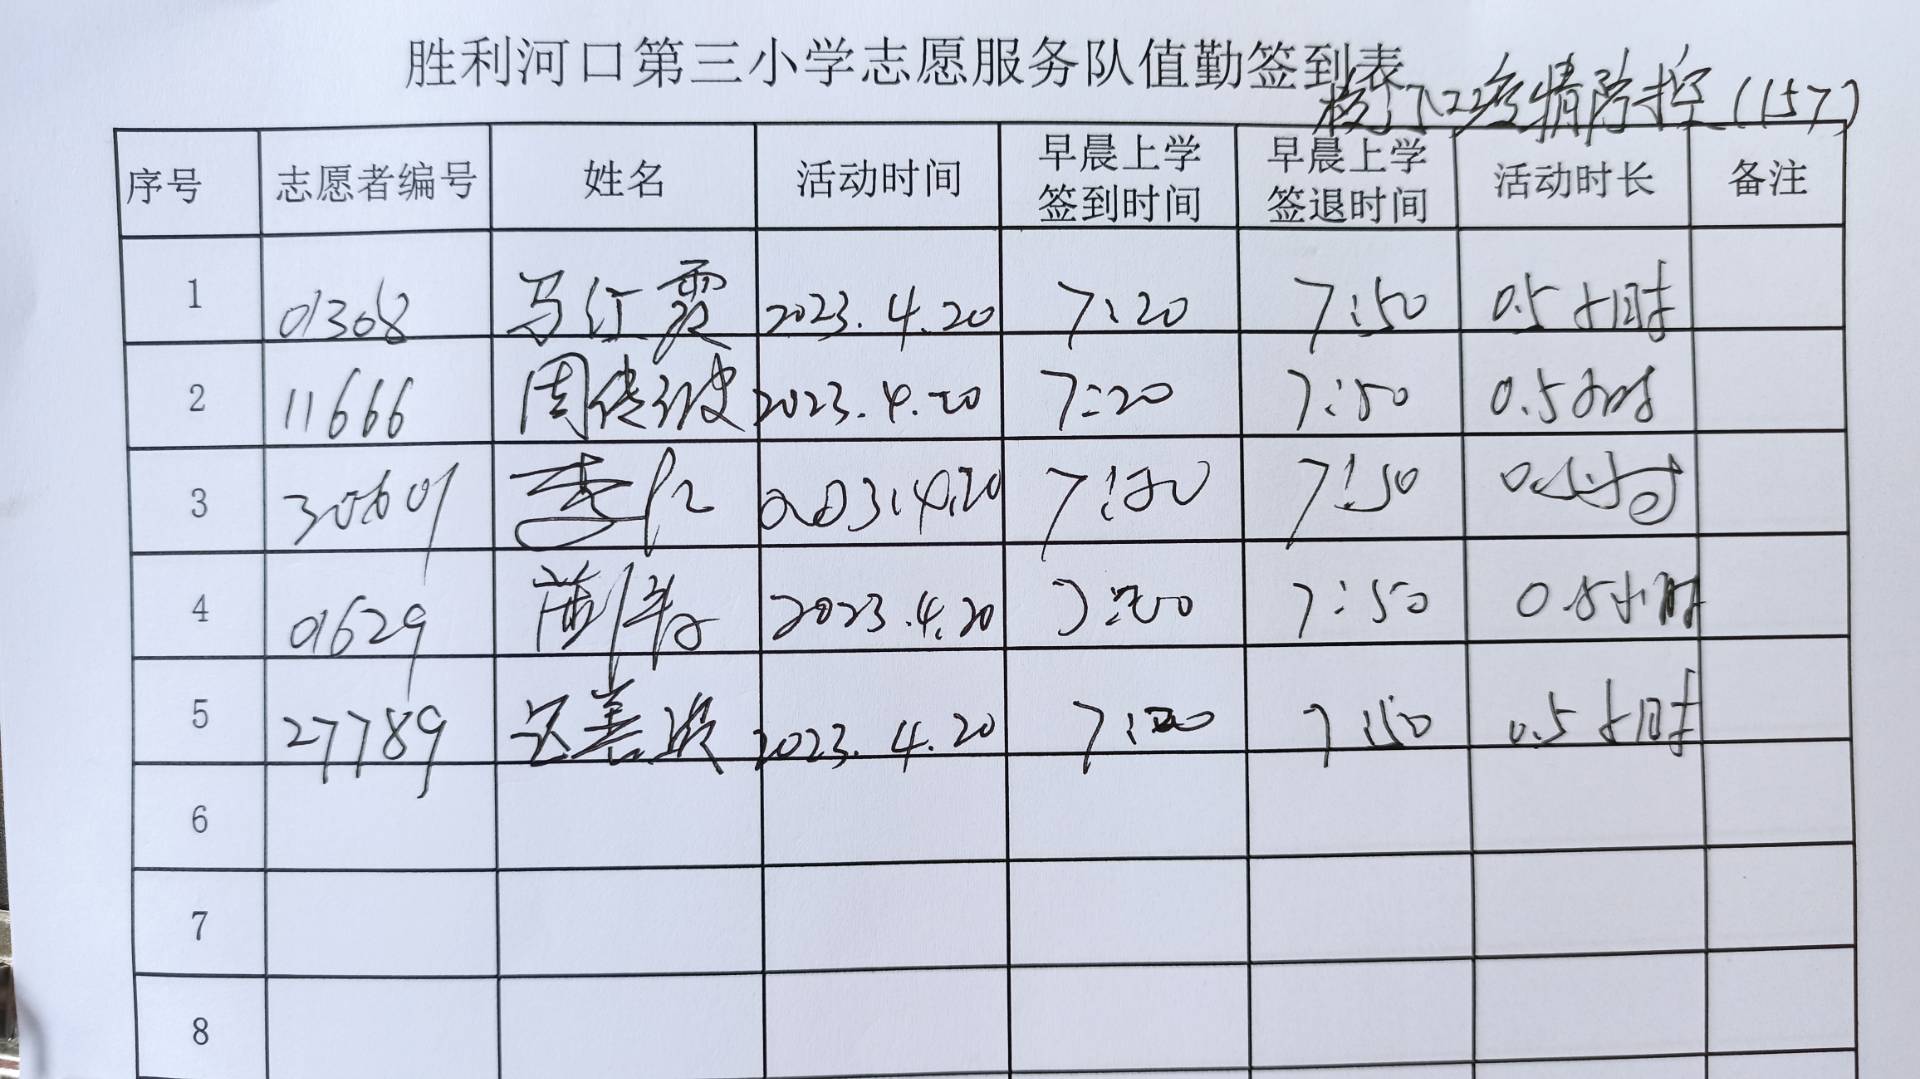 胜利河口第三小学志愿服务队值勤签到表
校门口疫情防控(157)
序号 志愿者编号 姓名 活动时间 早晨上学签到时间 早晨上学签退时间 活动时长 备注
1 01368 马红霞 2023.4.20 7:20 7:50 0.5小时
2 11666 周传彼 2023.4.20 7:20 7:50 0.5小时
3 30601 李 2023.4.20 7:20 7:50 0.5小时
4 01629 2023.4.20 7:20 7:50 0.5小时
5 27789 善波 2023.4.20 7:20 7:50 0.5小时
6
7
8